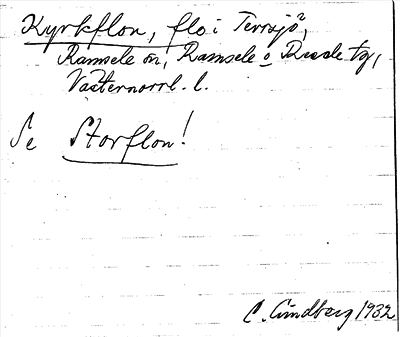 Kyrkflon, flo i Terrsjö,
Ramsele sn, Ramsele o Resele tg,
Västernorrl. l.
Se Storflon!
C. Lindberg 1932